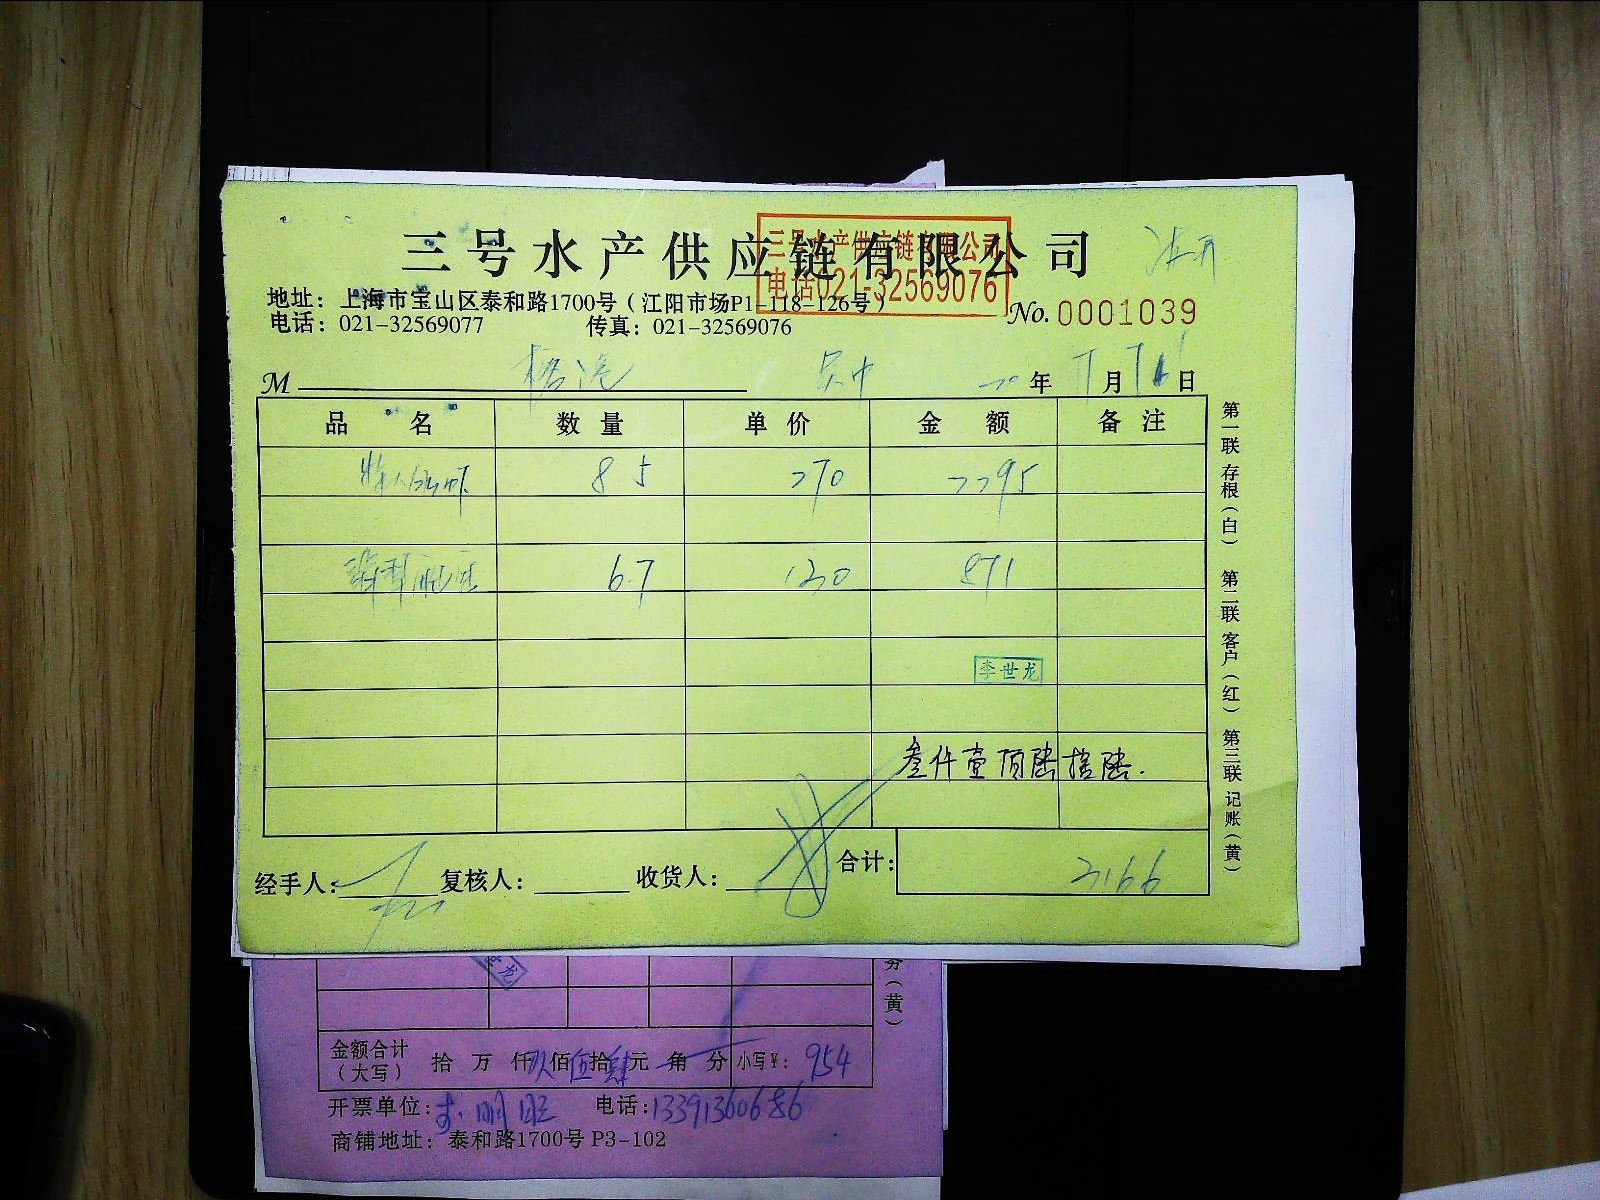 三号水产供应链有限公司
三号水产供应链有限公司
电话021-32569076
地址：上海市宝山区泰和路1700号（江阳市场P1-118-126号）
电话：021-32569077 传真：021-32569076
No. 0001039
M 年 月 日
品 名 数 量 单 价 金 额 备 注
85 270 2295
6.7 130 871
李世龙
叁仟壹佰陆拾陆.
经手人： 复核人： 收货人： 合计： 3166
第一联 存根（白） 第二联 客户（红） 第三联 记账（黄）
务（黄）
金额合计（大写） 拾 万 仟 玖 佰 伍 拾 肆 元 角 分 小写¥：954
开票单位： 电话：13391360686
商铺地址：泰和路1700号 P3-102